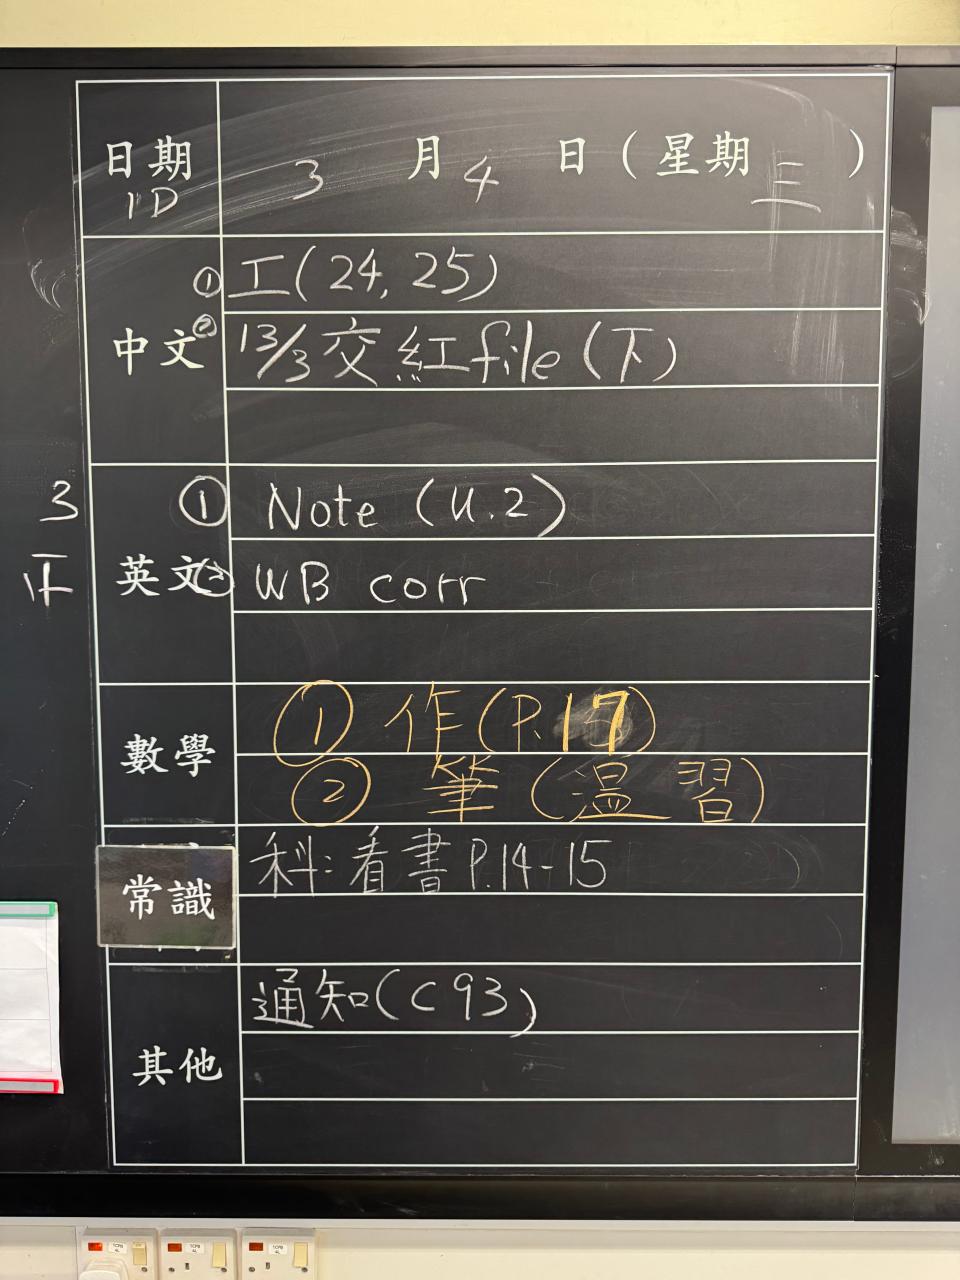 日期 3 月 4 日 (星期三)
1D
① 工(24, 25)
中文 ② 13/3 交紅file (下)
① Note (U.2)
英文 ② WB corr
3
正
① 作(P.17)
數學
② 筆 (溫習)
常識 科:看書 P.14-15
通知(C93)
其他